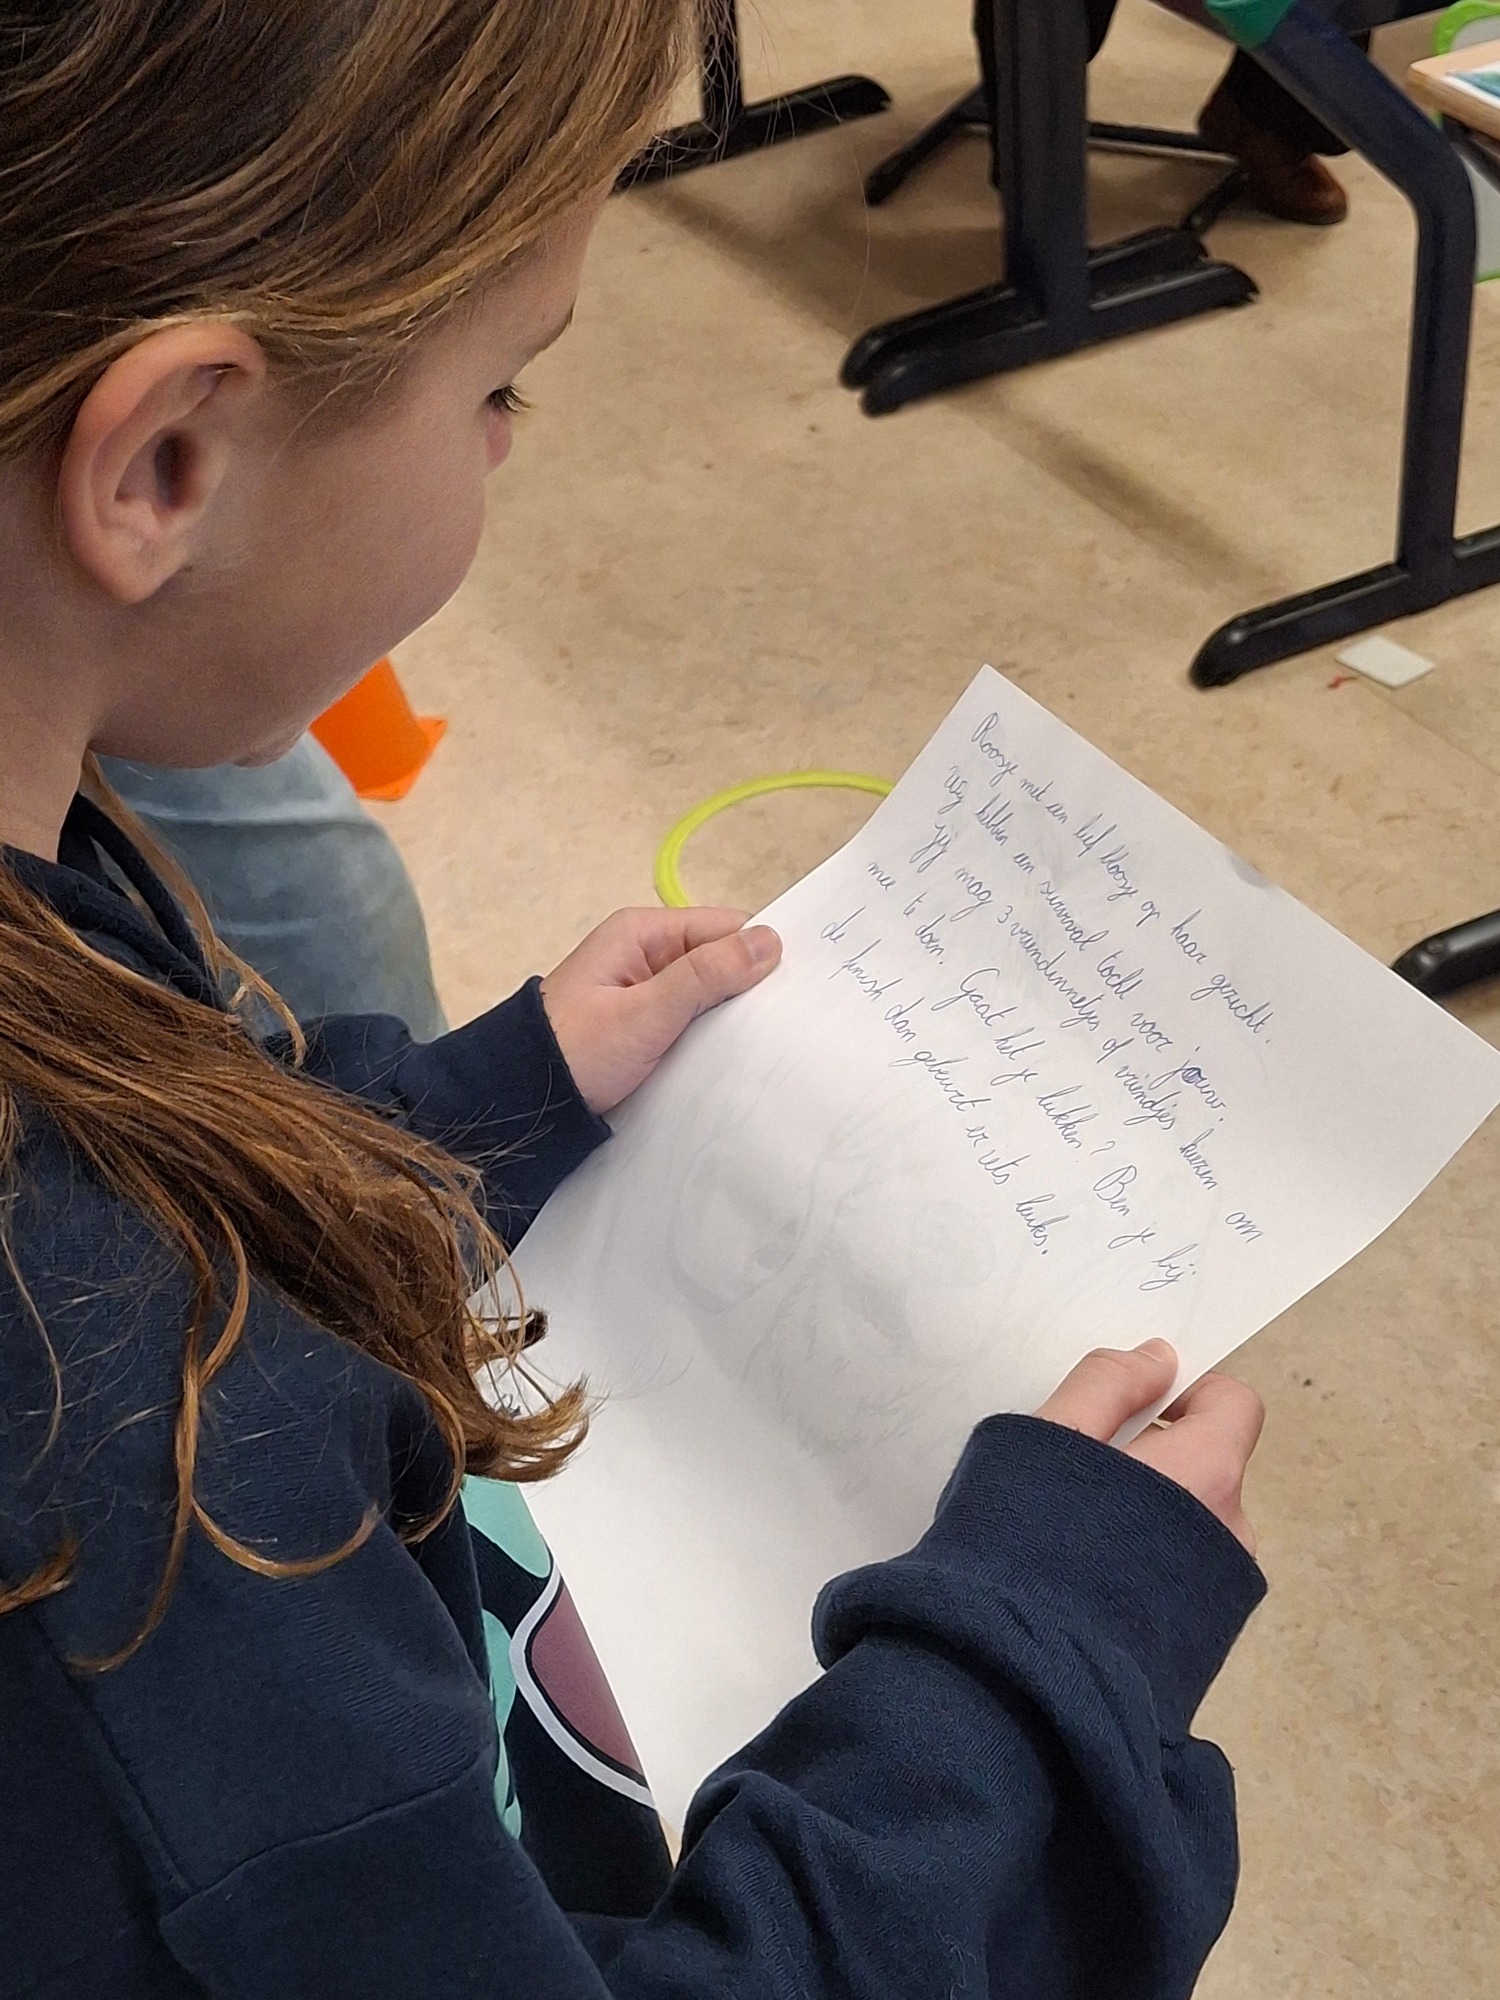 Roosje met een lief bloosje op haar gezicht.
Wij hebben een survival tocht voor jouw.
Jij mag 3 vriendinnetjes of vriendjes kiezen om
mee te doen. Gaat het je lukken? Ben je bij
de finish dan gebeurt er iets leuks.